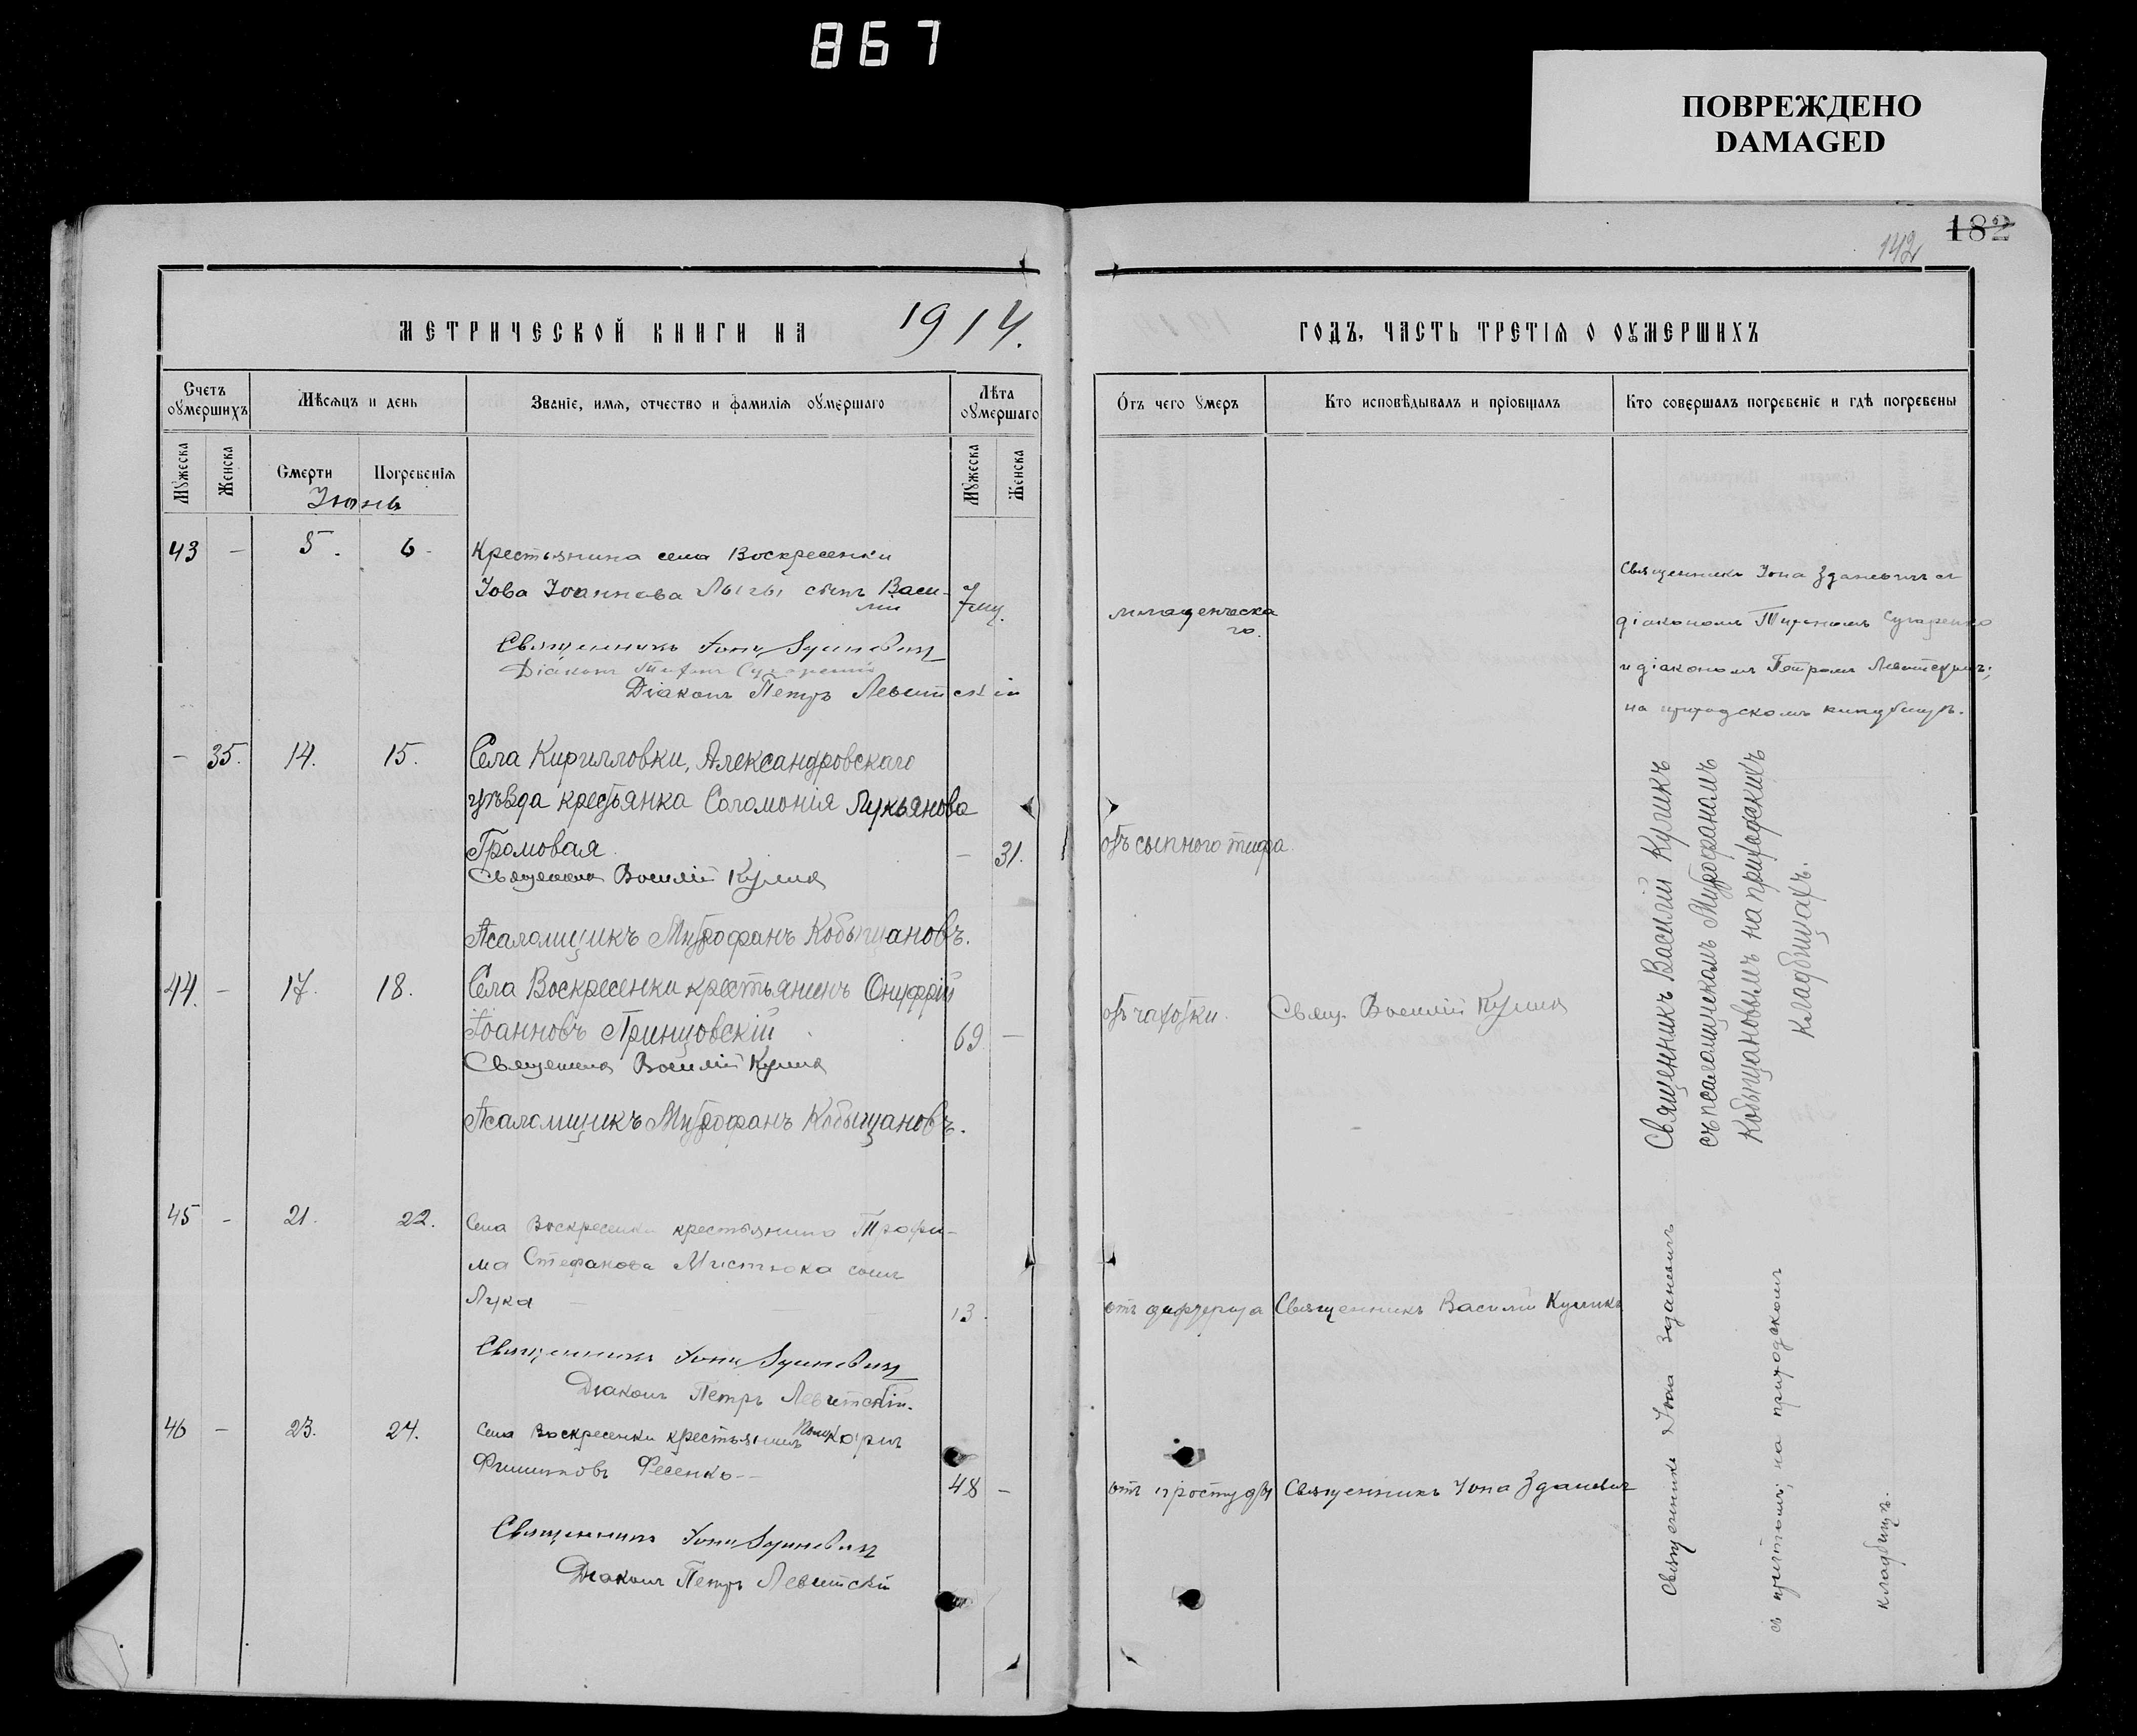 867
ПОВРЕЖДЕНО
DAMAGED
182
142
МЕТРИЧЕСКОЙ КНИГИ НА 1914.
Счетъ оумершихъ
Мѣсяцъ и день
Званіе, имя, отчество и фамилія оумершаго
Лѣта оумершаго
Мужеска
Женска
Смерти
Погребенія
Мужеска
Женска
Іюнь
43 - 5. 6-
Крестьянина села Воскресенки
Іова Іоаннова Лыгы сынъ Васи-
лій
7 мц.
Священникъ Іона Зданевич
Діаконъ Тихон Сухаренко
Діаконъ Петръ Левитскій
- 35. 14. 15.
Села Кирилловки, Александровскаго
уѣзда крестьянка Соломонія Лукьянова
Громовая - 31.
Священникъ Василій Куликъ
Псаломщикъ Митрофанъ Кобыщановъ.
44. - 17. 18.
Села Воскресенки крестьянинъ Онуфрій
Іоанновъ Принцовскій 69 -
Священникъ Василій Куликъ
Псаломщикъ Митрофанъ Кобыщановъ.
45 - 21. 22.
Села Воскресенки крестьянина Трофи-
ма Стефанова Мистюка сынъ
Лука 13.
Священникъ Іона Зданевич
Діаконъ Петръ Левитскій.
46 - 23. 24.
Села Воскресенки крестьянинъ
Филиповъ Фесенко - -
48 -
Священникъ Іона Зданевич
Діаконъ Петръ Левитскій
ГОДЪ, ЧАСТЬ ТРЕТІЯ О ОУМЕРШИХЪ
Отъ чего умеръ
Кто исповѣдывалъ и пріобщалъ
Кто совершалъ погребеніе и гдѣ погребены
младенческа
го.
Священникъ Іона Зданевичъ съ
діакономъ Тихономъ Сухаренко
и діакономъ Петромъ Левитскимъ;
на приходскомъ кладбищѣ.
отъ сыпного тифа.
отъ чахотки.
Свящ. Василій Куликъ
Священникъ Василій Куликъ
съ псаломщикомъ Митрофаномъ
Кобыщановымъ на приходскихъ
кладбищахъ.
отъ дифтерита
Священникъ Василій Куликъ
отъ простуды
Священникъ Іона Зданевич
Священникъ Іона Зданевичъ
съ причтомъ; на приходскомъ
кладбищѣ.